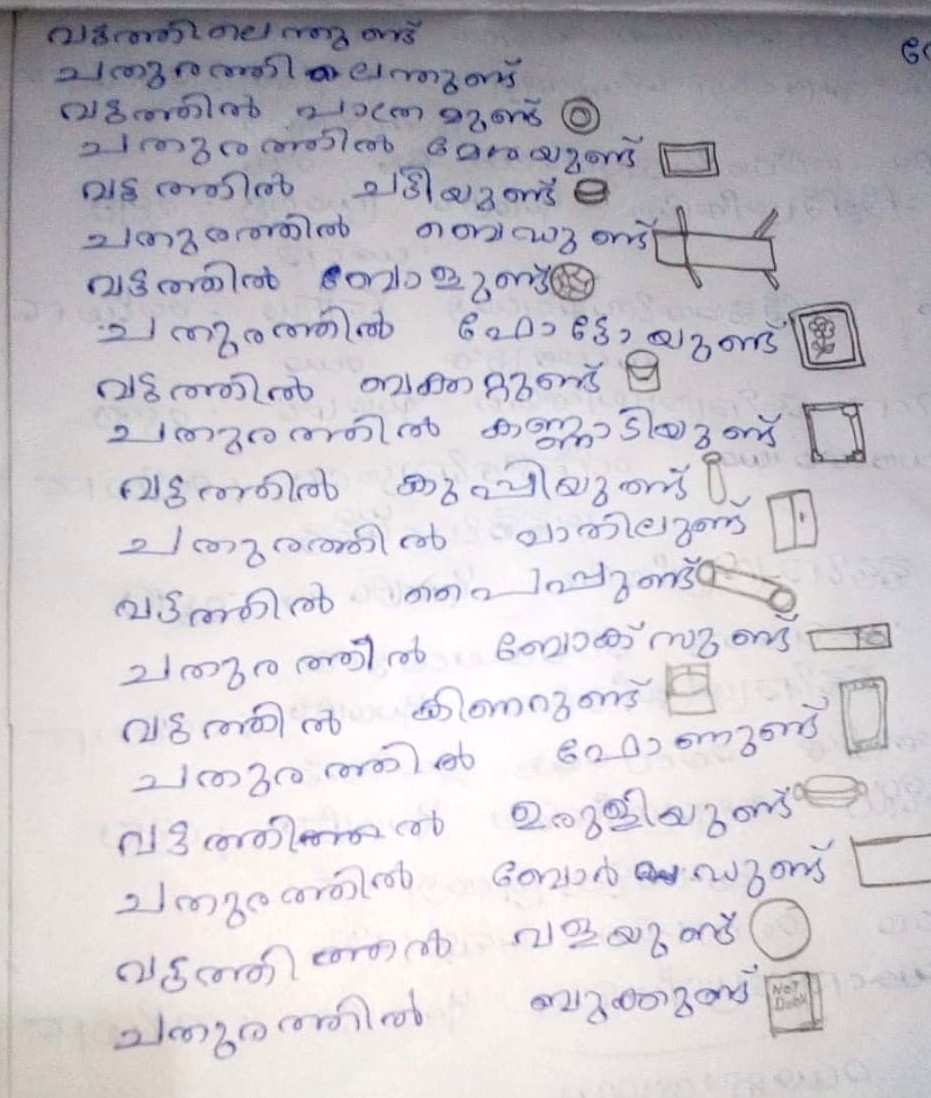 വട്ടത്തിലെന്തുണ്ട്
ചതുരത്തിലെന്തുണ്ട്
വട്ടത്തിൽ പാത്രമുണ്ട്
ചതുരത്തിൽ മേശയുണ്ട്
വട്ടത്തിൽ ചട്ടിയുണ്ട്
ചതുരത്തിൽ ബെഡുണ്ട്
വട്ടത്തിൽ ബോളുണ്ട്
ചതുരത്തിൽ ഫോട്ടോയുണ്ട്
വട്ടത്തിൽ ബക്കറ്റുണ്ട്
ചതുരത്തിൽ കണ്ണാടിയുണ്ട്
വട്ടത്തിൽ കുപ്പിയുണ്ട്
ചതുരത്തിൽ വാതിലുണ്ട്
വട്ടത്തിൽ പൈപ്പുണ്ട്
ചതുരത്തിൽ ബോക്സുണ്ട്
വട്ടത്തിൽ കിണറുണ്ട്
ചതുരത്തിൽ ഫോണുണ്ട്
വട്ടത്തിൽ ഉരുളിയുണ്ട്
ചതുരത്തിൽ ബോർഡുണ്ട്
വട്ടത്തിൽ വളയുണ്ട്
ചതുരത്തിൽ ബുക്കുണ്ട്
NOT